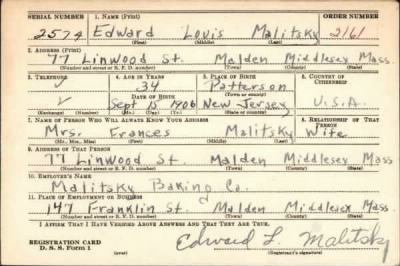 SERIAL NUMBER 1. NAME (Print) ORDER NUMBER
2574 Edward Louis Malitsky 2161
(First) (Middle) (Last)
2. ADDRESS (Print)
77 Linwood St. Malden Middlesex Mass
(Number and street or R. F. D. number) (Town) (County) (State)
3. TELEPHONE 4. AGE IN YEARS 5. PLACE OF BIRTH 6. COUNTRY OF CITIZENSHIP
34 Patterson
DATE OF BIRTH (Town or county)
Sept 15 1906 New Jersey U.S.A.
(Exchange) (Number) (Mo.) (Day) (Yr.) (State or country)
7. NAME OF PERSON WHO WILL ALWAYS KNOW YOUR ADDRESS 8. RELATIONSHIP OF THAT PERSON
Mrs. Frances Malitsky Wife
(Mr., Mrs., Miss) (First) (Middle) (Last)
9. ADDRESS OF THAT PERSON
77 Linwood St. Malden Middlesex Mass
(Number and street or R. F. D. number) (Town) (County) (State)
10. EMPLOYER'S NAME
Malitsky Baking Co.
11. PLACE OF EMPLOYMENT OR BUSINESS
147 Franklin St. Malden Middlesex Mass
(Number and street or R. F. D. number) (Town) (County) (State)
I AFFIRM THAT I HAVE VERIFIED ABOVE ANSWERS AND THAT THEY ARE TRUE.
REGISTRATION CARD
D. S. S. Form 1
(over)
Edward L. Malitsky
(Registrant's signature)